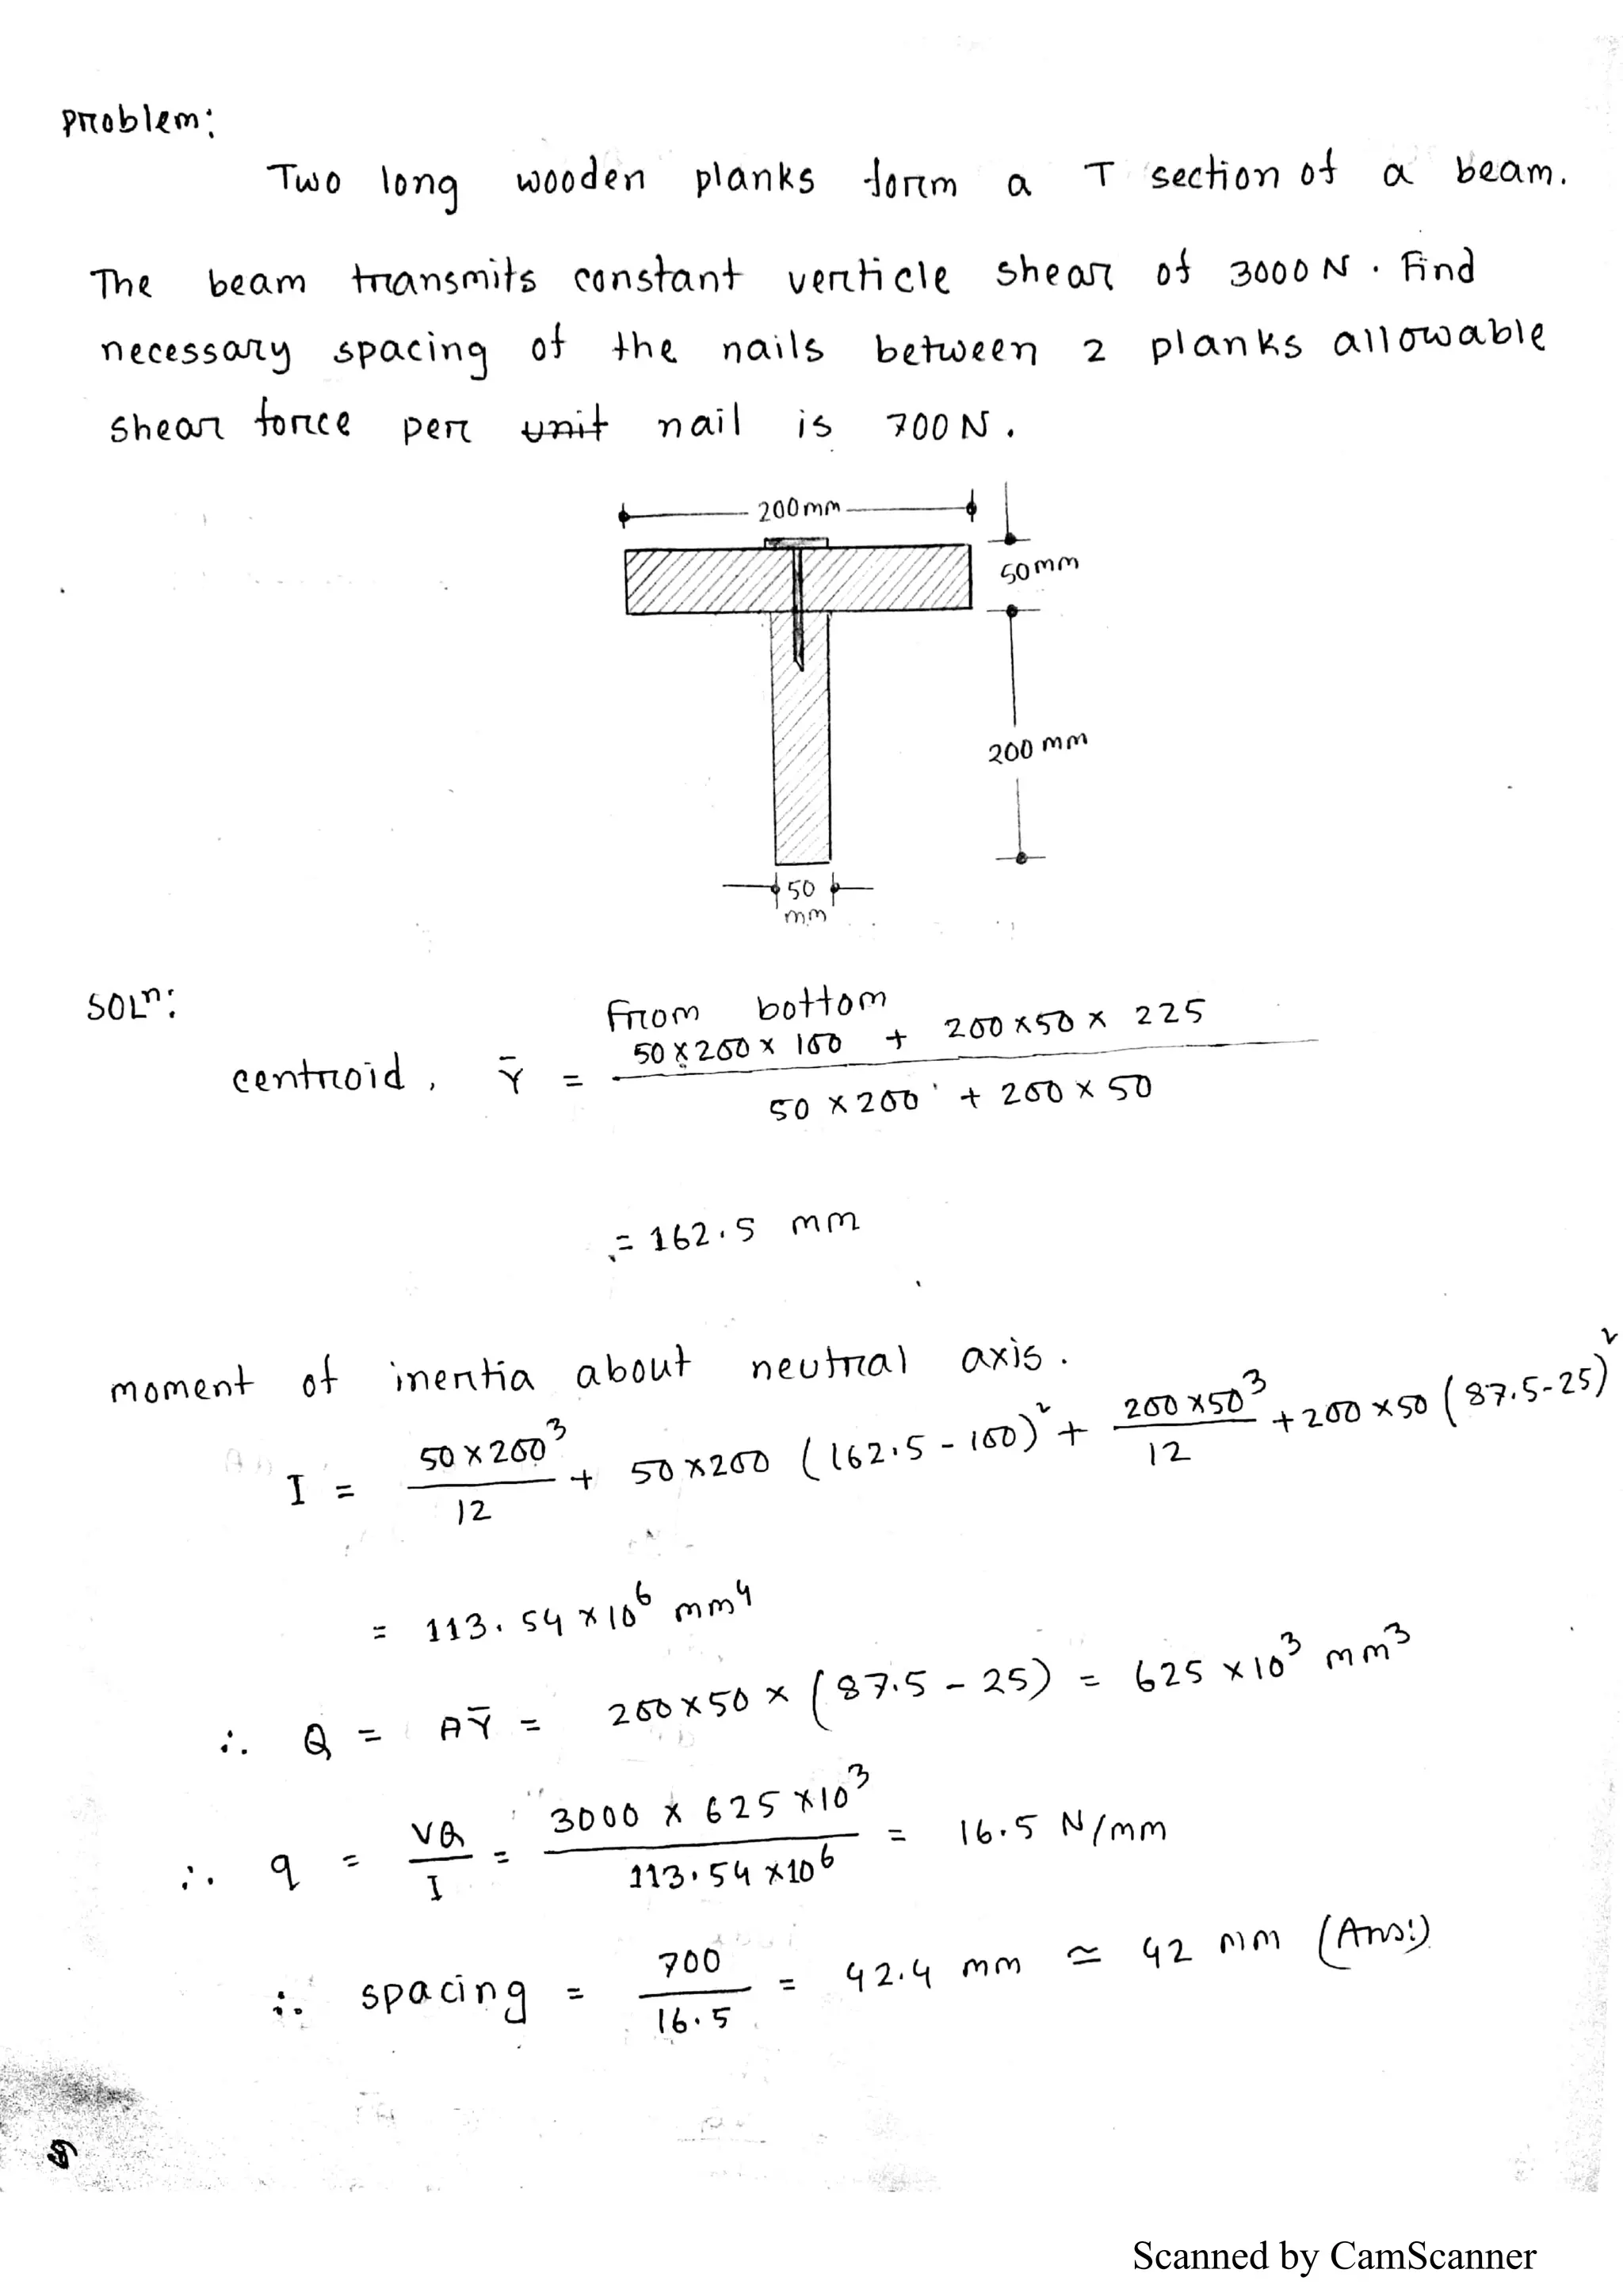 Problem:
Two long wooden planks form a T section of a beam.
The beam transmits constant verticle shear of 3000 N. Find
necessary spacing of the nails between 2 planks allowable
shear force per unit nail is 700 N.
200mm
50mm
200 mm
50
mm
SOLⁿ:
From bottom
centroid, Ȳ = (50×200×100 + 200×50×225) / (50×200 + 200×50)
= 162.5 mm
moment of inertia about neutral axis.
I = 50×200³/12 + 50×200 (162.5-100)² + 200×50³/12 + 200×50 (87.5-25)²
= 113.54×10⁶ mm⁴
∴ Q = AȲ = 200×50×(87.5-25) = 625×10³ mm³
∴ q = VQ/I = 3000 × 625×10³ / 113.54×10⁶ = 16.5 N/mm
∴ spacing = 700/16.5 = 42.4 mm ≃ 42 mm (Ans:)
Scanned by CamScanner